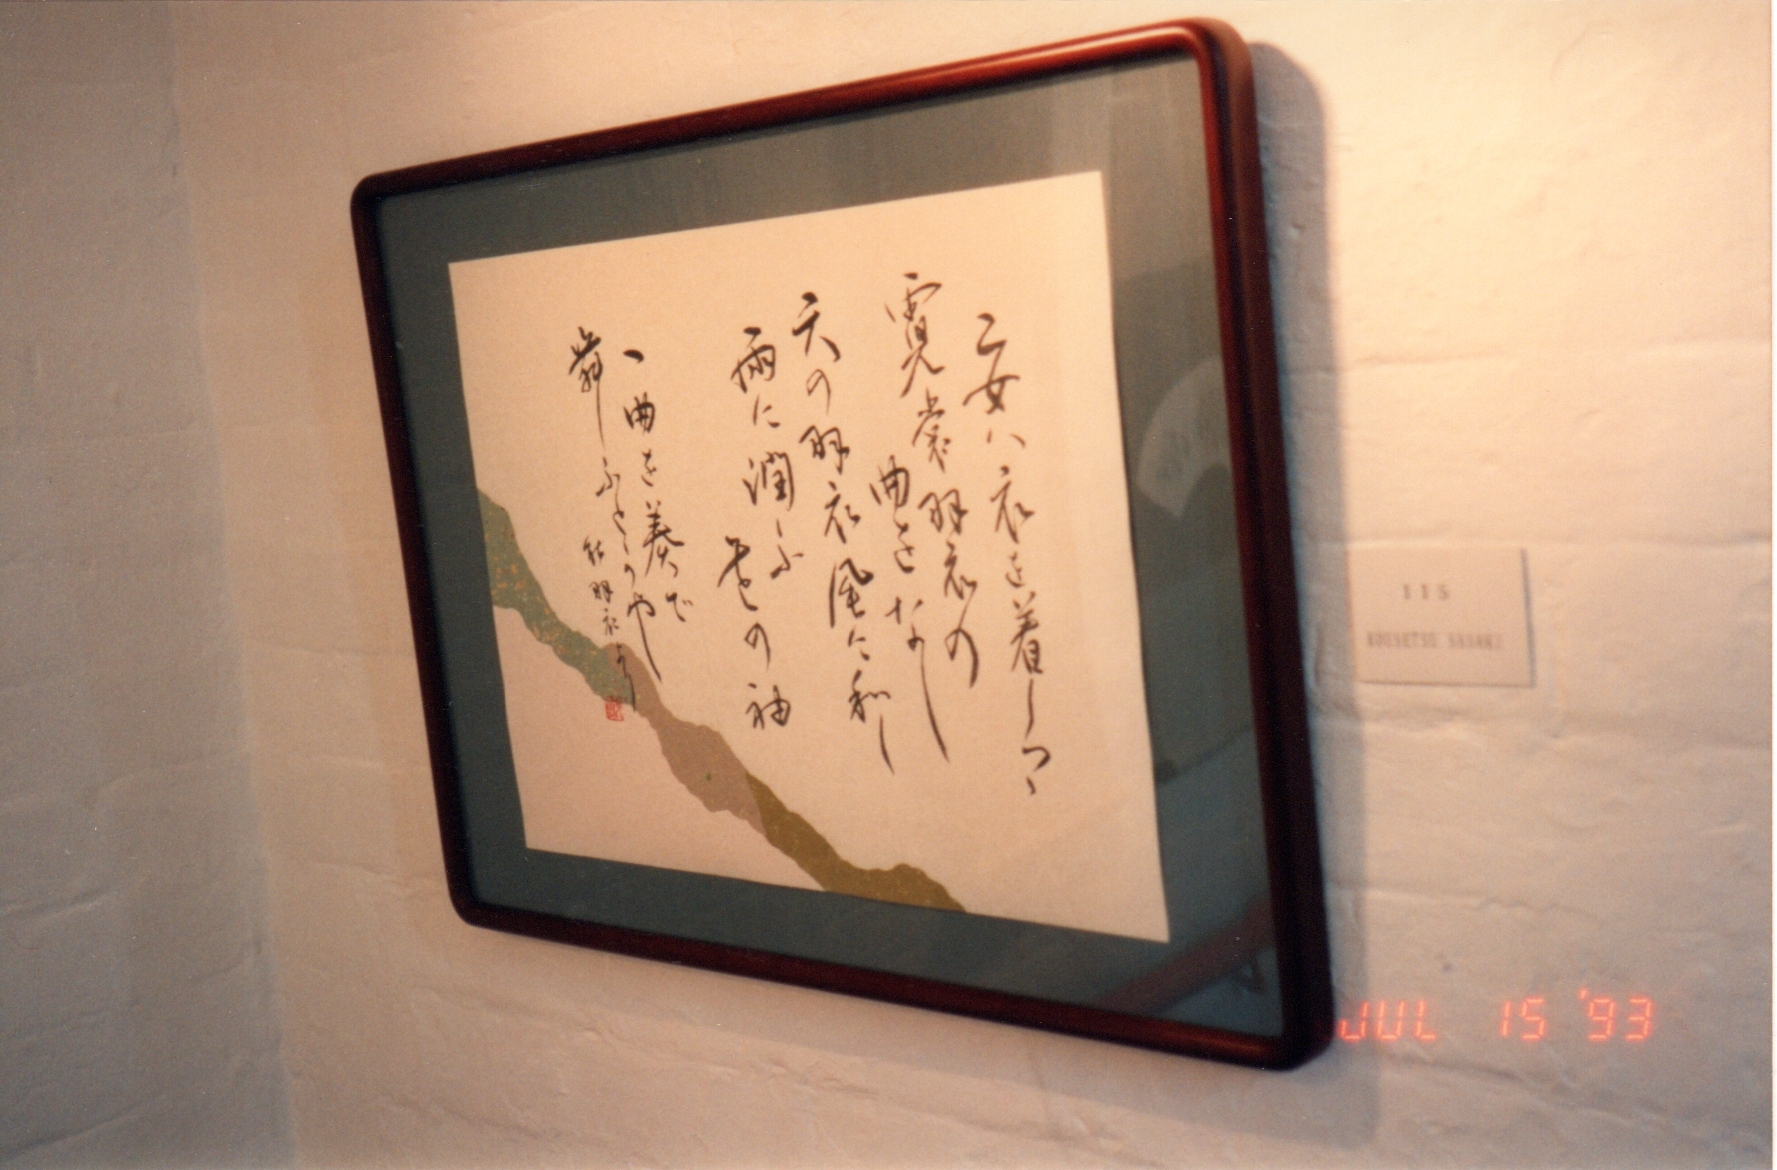 乙女ハ衣を着しつゝ
霓裳羽衣の
曲をなし
天の羽衣風に和し
雨に潤ふ
花の袖
一曲を奏で
舞ふとかや
能羽衣より
115
KOUSETSU SASAKI
JUL 15 '93